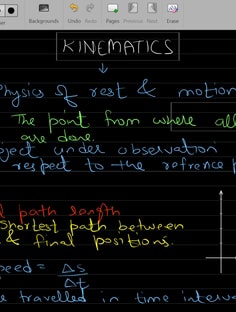 Backgrounds Undo Redo Pages Previous Next Erase
KINEMATICS
Physics of rest & motion
The point from where all
are done.
ject under observation
respect to the refrence
path length
shortest path between
& final positions.
peed = Δs
Δt
travelled in time interva